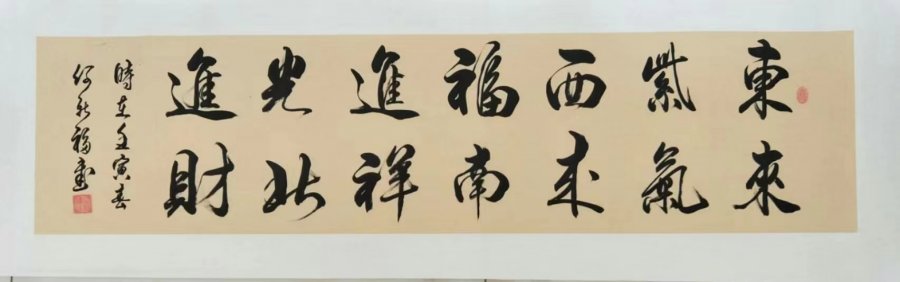 東來
紫氣
西来
福南
進祥
光北
進財
時在壬寅春
何福書